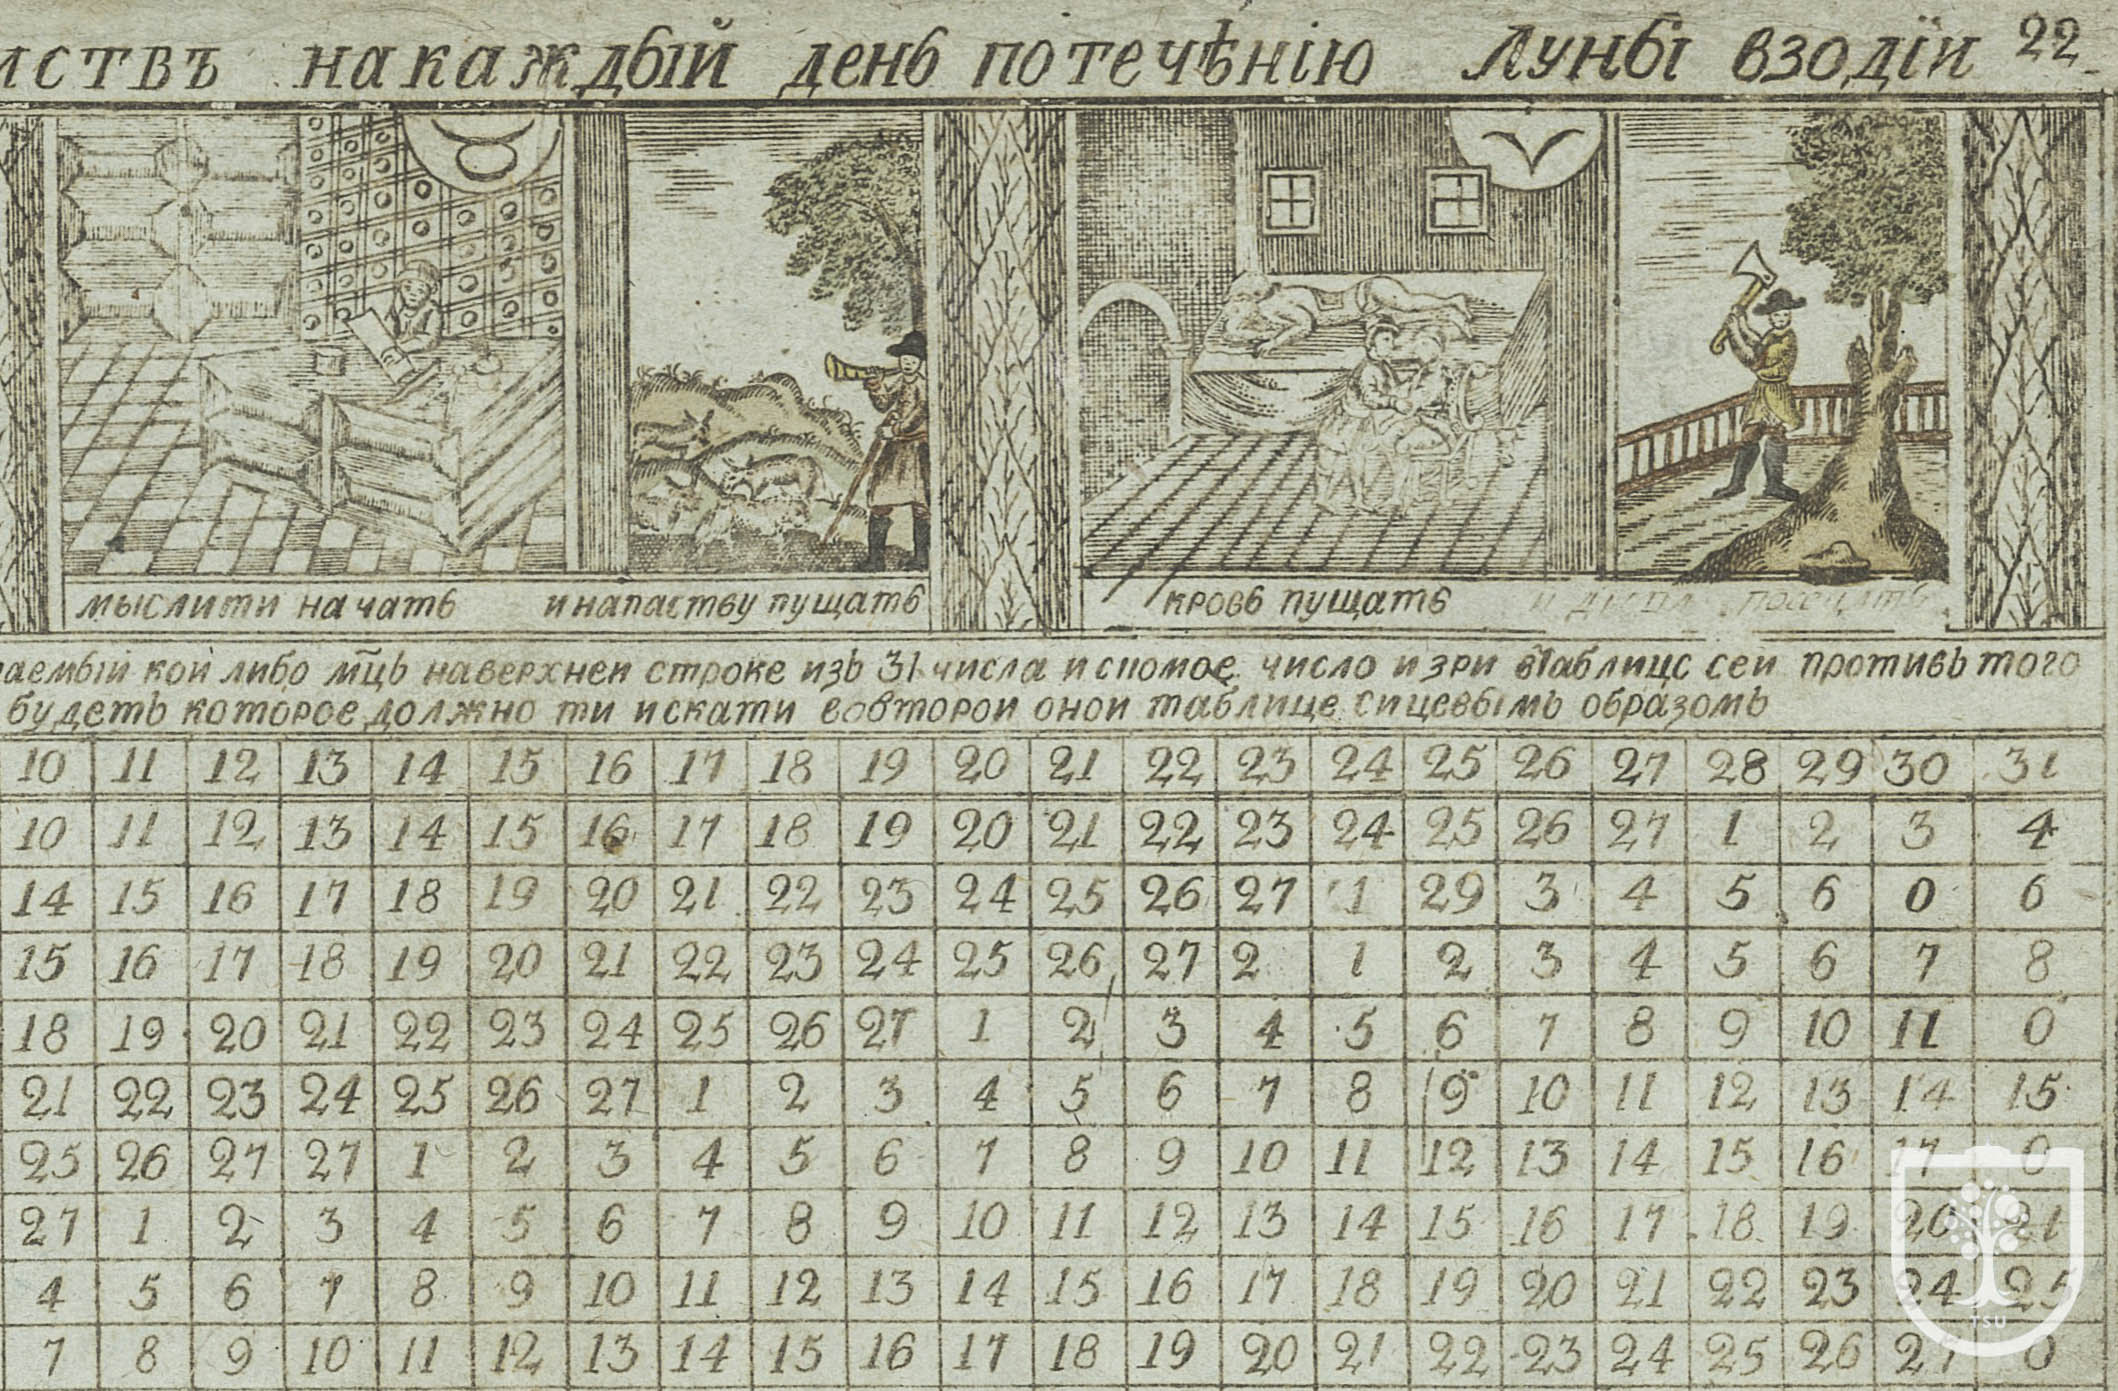 иствъ накаждый день потечѣнію Луны взодїи 22
мыслити начать инапаству пущать кровь пущать
аемый кой либо мц̃ь наверхнеи строке изь 31 числа и спомое число изри вТаблицс сеи противь того
будеть которое должно ти искати вовторои онои таблице сицевымь образомь
10 11 12 13 14 15 16 17 18 19 20 21 22 23 24 25 26 27 28 29 30 31
10 11 12 13 14 15 16 17 18 19 20 21 22 23 24 25 26 27 1 2 3 4
14 15 16 17 18 19 20 21 22 23 24 25 26 27 1 29 3 4 5 6 0 6
15 16 17 18 19 20 21 22 23 24 25 26 27 2 1 2 3 4 5 6 7 8
18 19 20 21 22 23 24 25 26 27 1 2 3 4 5 6 7 8 9 10 11 0
21 22 23 24 25 26 27 1 2 3 4 5 6 7 8 9 10 11 12 13 14 15
25 26 27 27 1 2 3 4 5 6 7 8 9 10 11 12 13 14 15 16 17 0
27 1 2 3 4 5 6 7 8 9 10 11 12 13 14 15 16 17 18 19 20 21
4 5 6 7 8 9 10 11 12 13 14 15 16 17 18 19 20 21 22 23 24 25
7 8 9 10 11 12 13 14 15 16 17 18 19 20 21 22 23 24 25 26 27 0
TSU